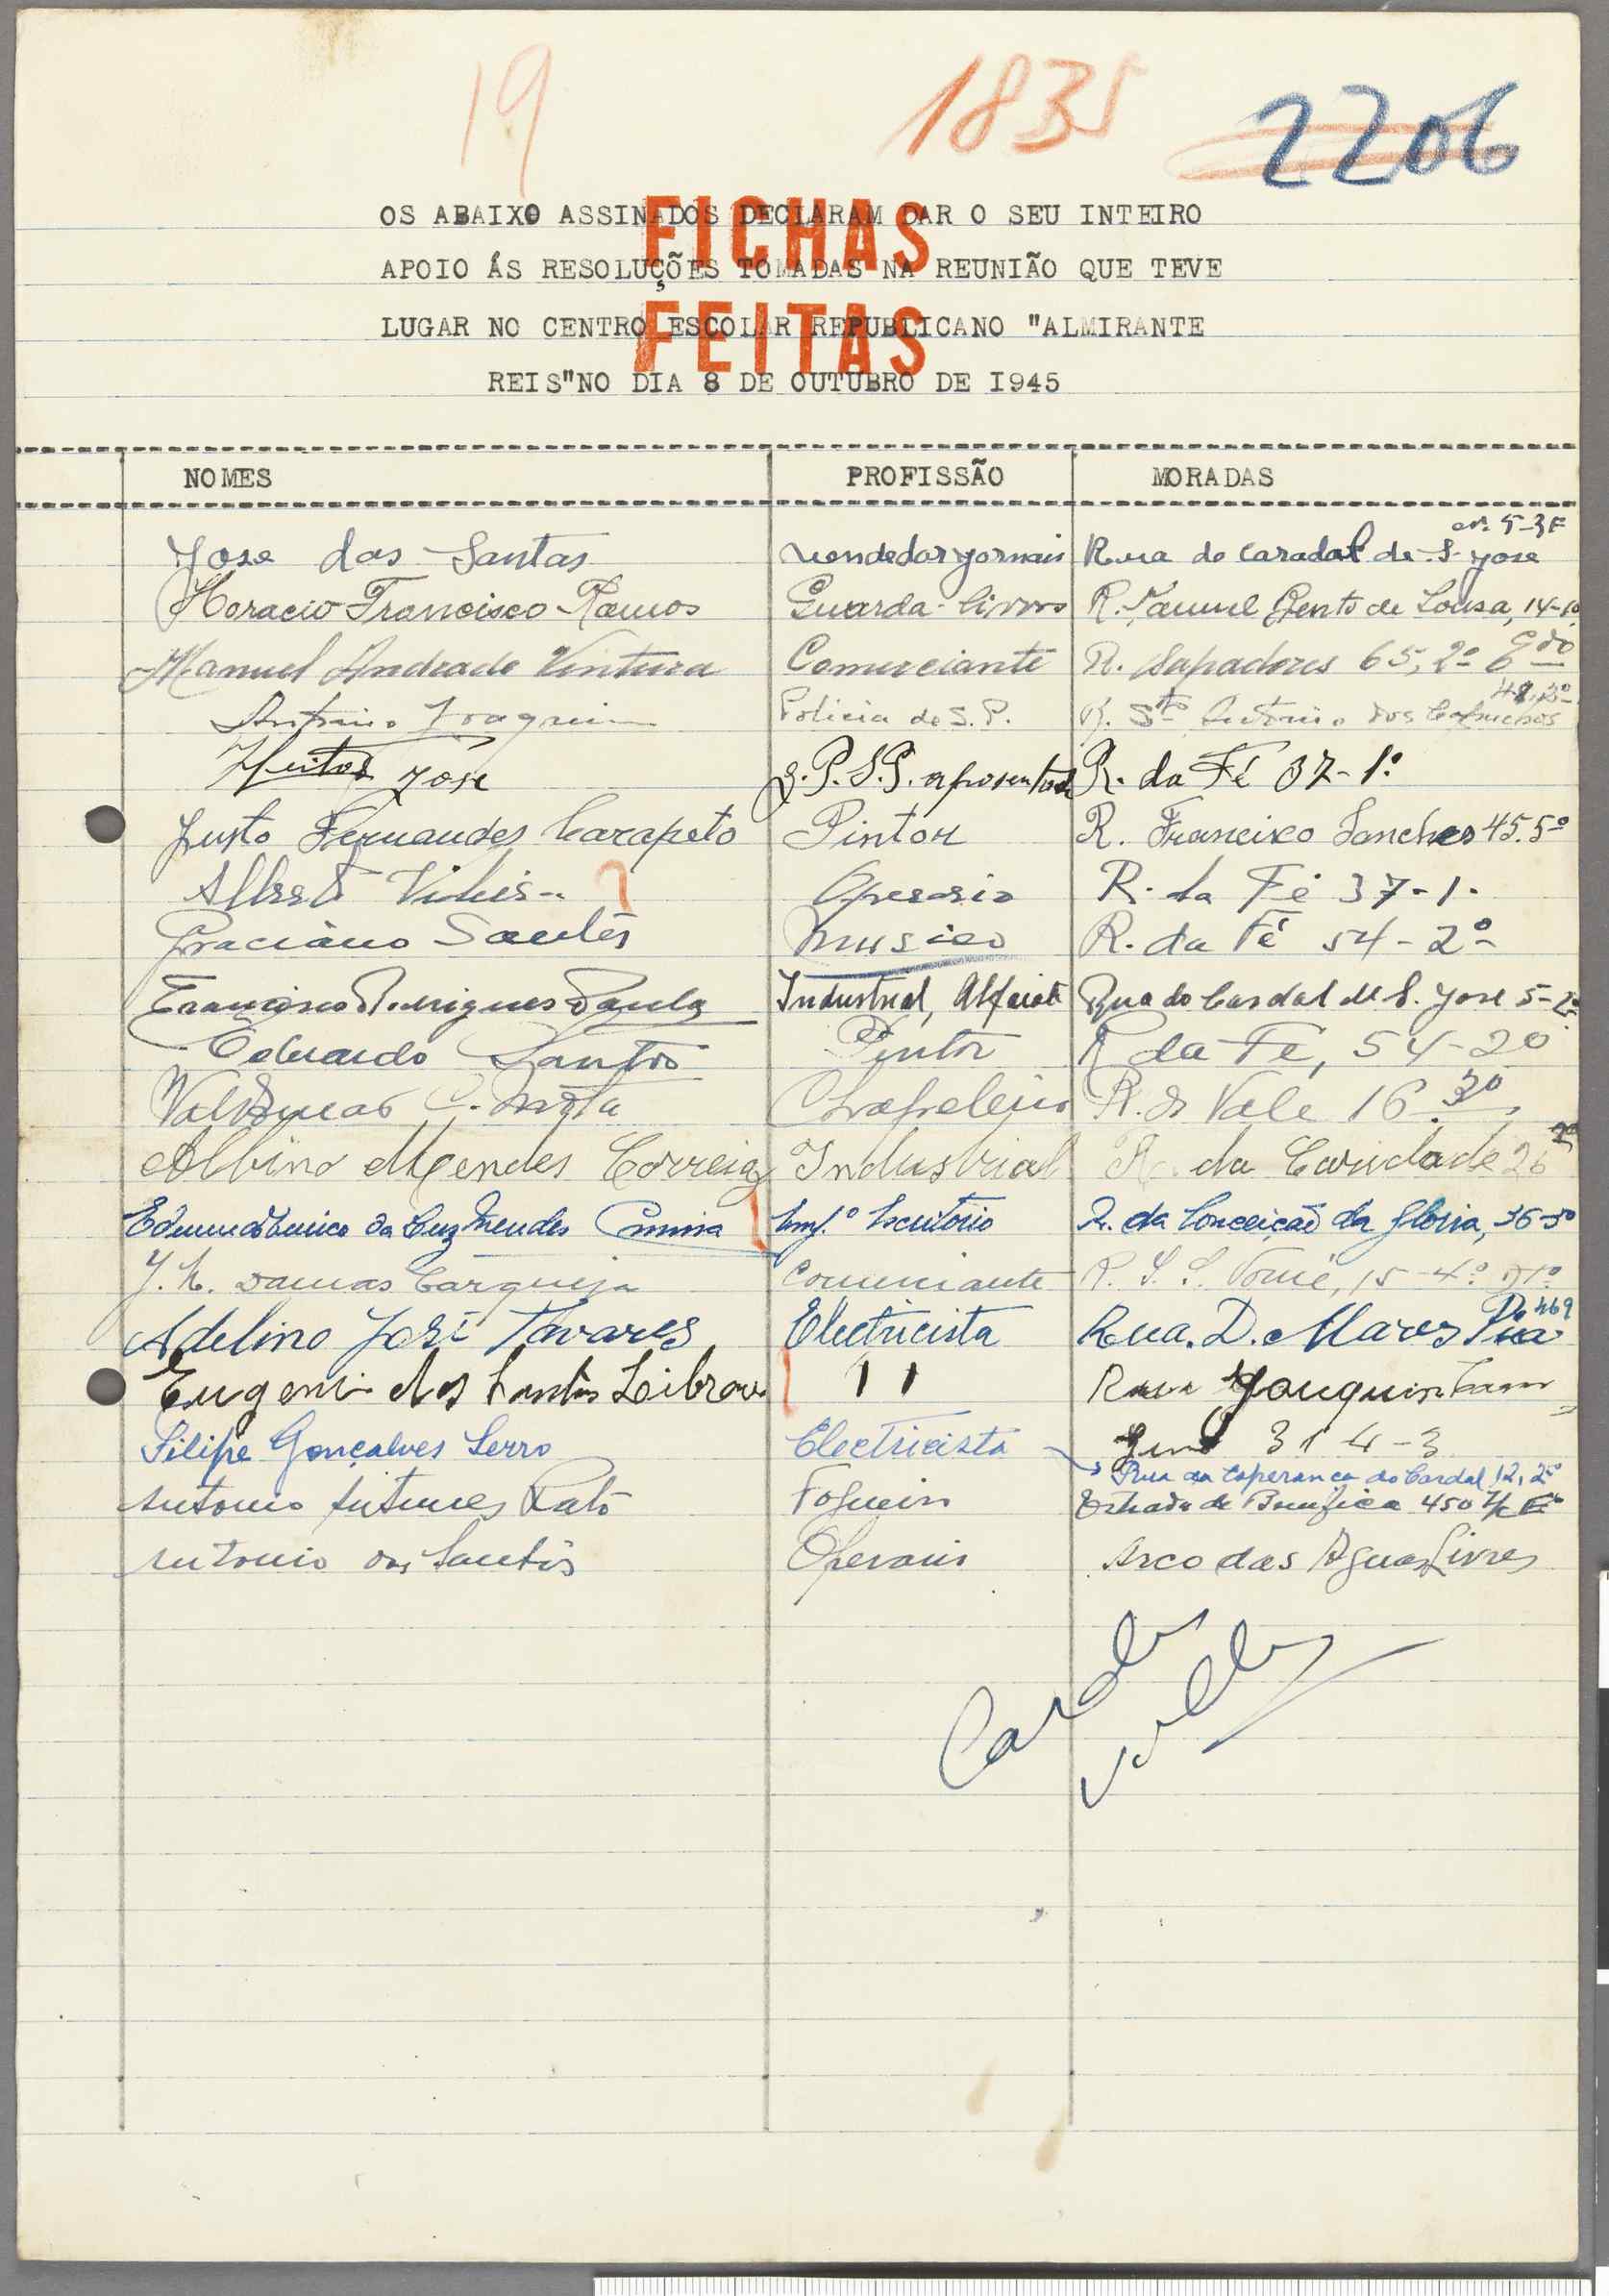 19 1835 2206
OS ABAIXO ASSINADOS DECLARAM DAR O SEU INTEIRO
FICHAS
APOIO ÁS RESOLUÇÕES TOMADAS NA REUNIÃO QUE TEVE
FEITAS
LUGAR NO CENTRO ESCOLAR REPUBLICANO "ALMIRANTE
REIS"NO DIA 8 DE OUTUBRO DE I945
NOMES PROFISSÃO MORADAS
Jose dos Santas vendedor jornais Rua do de S. Jose
Horacio Francisco Ramos Guarda-livros R. Bento de Sousa, 14-1º
Manuel Andrade Ventura Comerciante R. Sapadores 65, 2º Edo
Antonio Joaquim Policia de S.P. R. Sto Antonio dos Capuchos
Jose P.S.P. aposentado R. da Fé 37-1º
Justo Fernandes Carapeto Pintor R. Francisco Sanches 45.5º
R. da Fé 37-1.
Graciano Santos Musico R. da Fé 54-2º
Francisco Rodrigues Paula Industrial, Alfaiate Rua do Cardal de S. Jose 5-2º
Eduardo Santos Pintor R da Fé, 54-2º
Chapeleiro R. do Vale 16.3º
Albino Mendes Correia Industrial R. da Caridade 26
da Cruz Mendes Empº Escritório R. da Conceição da Gloria, 36-3º
J. Damas Carqueija Comerciante R. S. Tomé, 15-4º
Adelino José Tavares Electricista Rua. D. Maria Pia
Eugenio dos Santos 11 Rua
Filipe Gonçalves Serro Electricista 31 4-3
Rua da Esperança do Cardal, 12, 2º
Antonio Antunes Rato Fogueiro Estrada de Bemfica 450
Antonio dos Santos Operario Arco das Aguas Livres